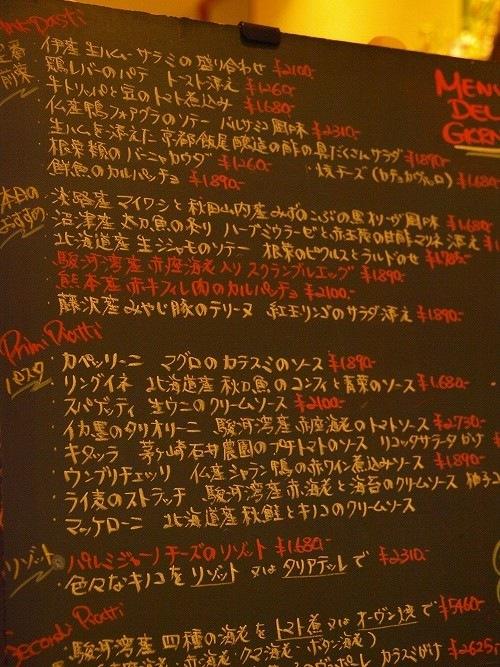 Antipasti
MENU
DEL
GIORNO
定番
前菜
・伊産 生ハム・サラミの盛り合わせ ¥2100-
・鶏レバーのパテ トースト添え ¥1260-
・牛トリッパと豆のトマト煮込み ¥1680-
・仏産鴨フォアグラのソテー バルサミコ風味 ¥2310-
・生ハムを添えた京都飯尾醸造の酢の具だくさんサラダ ¥1890-
・根菜類のバーニャカウダ ¥1260- ・焼チーズ(カチョカヴァッロ) ¥1680-
・鮮魚のカルパッチョ ¥1890-
本日の
おすすめ
・淡路産マイワシと秋田山内産みずのこぶの黒オリーヴ風味 ¥1680-
・沼津産太刀魚の香り ハーブミウラービと赤玉葱の甘酢マリネ添え
・北海道産生シシャモのソテー 根菜のピクルスとラルドのせ ¥1785-
・駿河湾産赤座海老入りスクランブルエッグ ¥1890-
・熊本産赤牛フィレ肉のカルパッチョ ¥2100-
・藤沢産みやじ豚のテリーヌ 紅玉リンゴのサラダ添え ¥1890-
Primi Piatti
パスタ
・カペッリーニ マグロのカラスミのソース ¥1890-
・リングイネ 北海道産秋刀魚のコンフィと青菜のソース ¥1,680-
・スパゲッティ 生ウニのクリームソース ¥2100-
・イカ墨のタリオリーニ 駿河湾産赤座海老のトマトソース ¥2730-
・キタッラ 茅ヶ崎石井農園のプチトマトのソース リコッタサラータがけ
・ウンブリチェッリ 仏産シャラン鴨の赤ワイン煮込みソース ¥1890-
・ライ麦のストラッチ 駿河湾産赤海老と海苔のクリームソース 柚子コ
・マッケローニ 北海道産秋鮭とキノコのクリームソース
リゾット
・パルミジャーノチーズのリゾット ¥1,680-
・色々なキノコをリゾット又はタリアテッレで ¥2310-
Secondi Piatti
・駿河湾産四種の海老をトマト煮又はオーブン焼で ¥5460-
赤海老・クマ海老・ボタン海老)
カラスミがけ ¥2625-